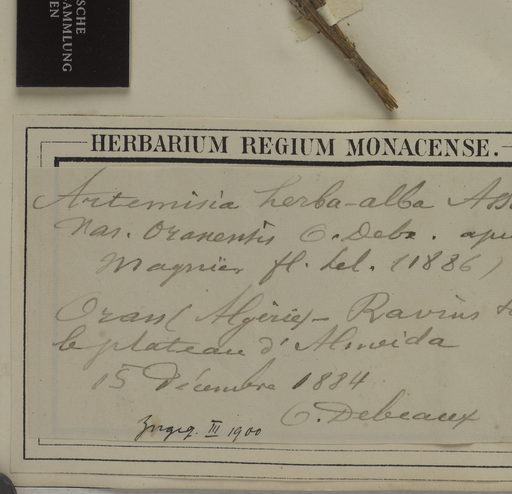 SCHE
SAMMLUNG
EN
HERBARIUM REGIUM MONACENSE.
Artemisia herba-alba Ass
Var. Oranensis O. Deb. apu
Magnier fl. sel. (1886)
Oran (Algérie) - Ravins
le plateau d'Almeida
15 Décembre 1884
O. Debeaux
Zugeg. III 1900